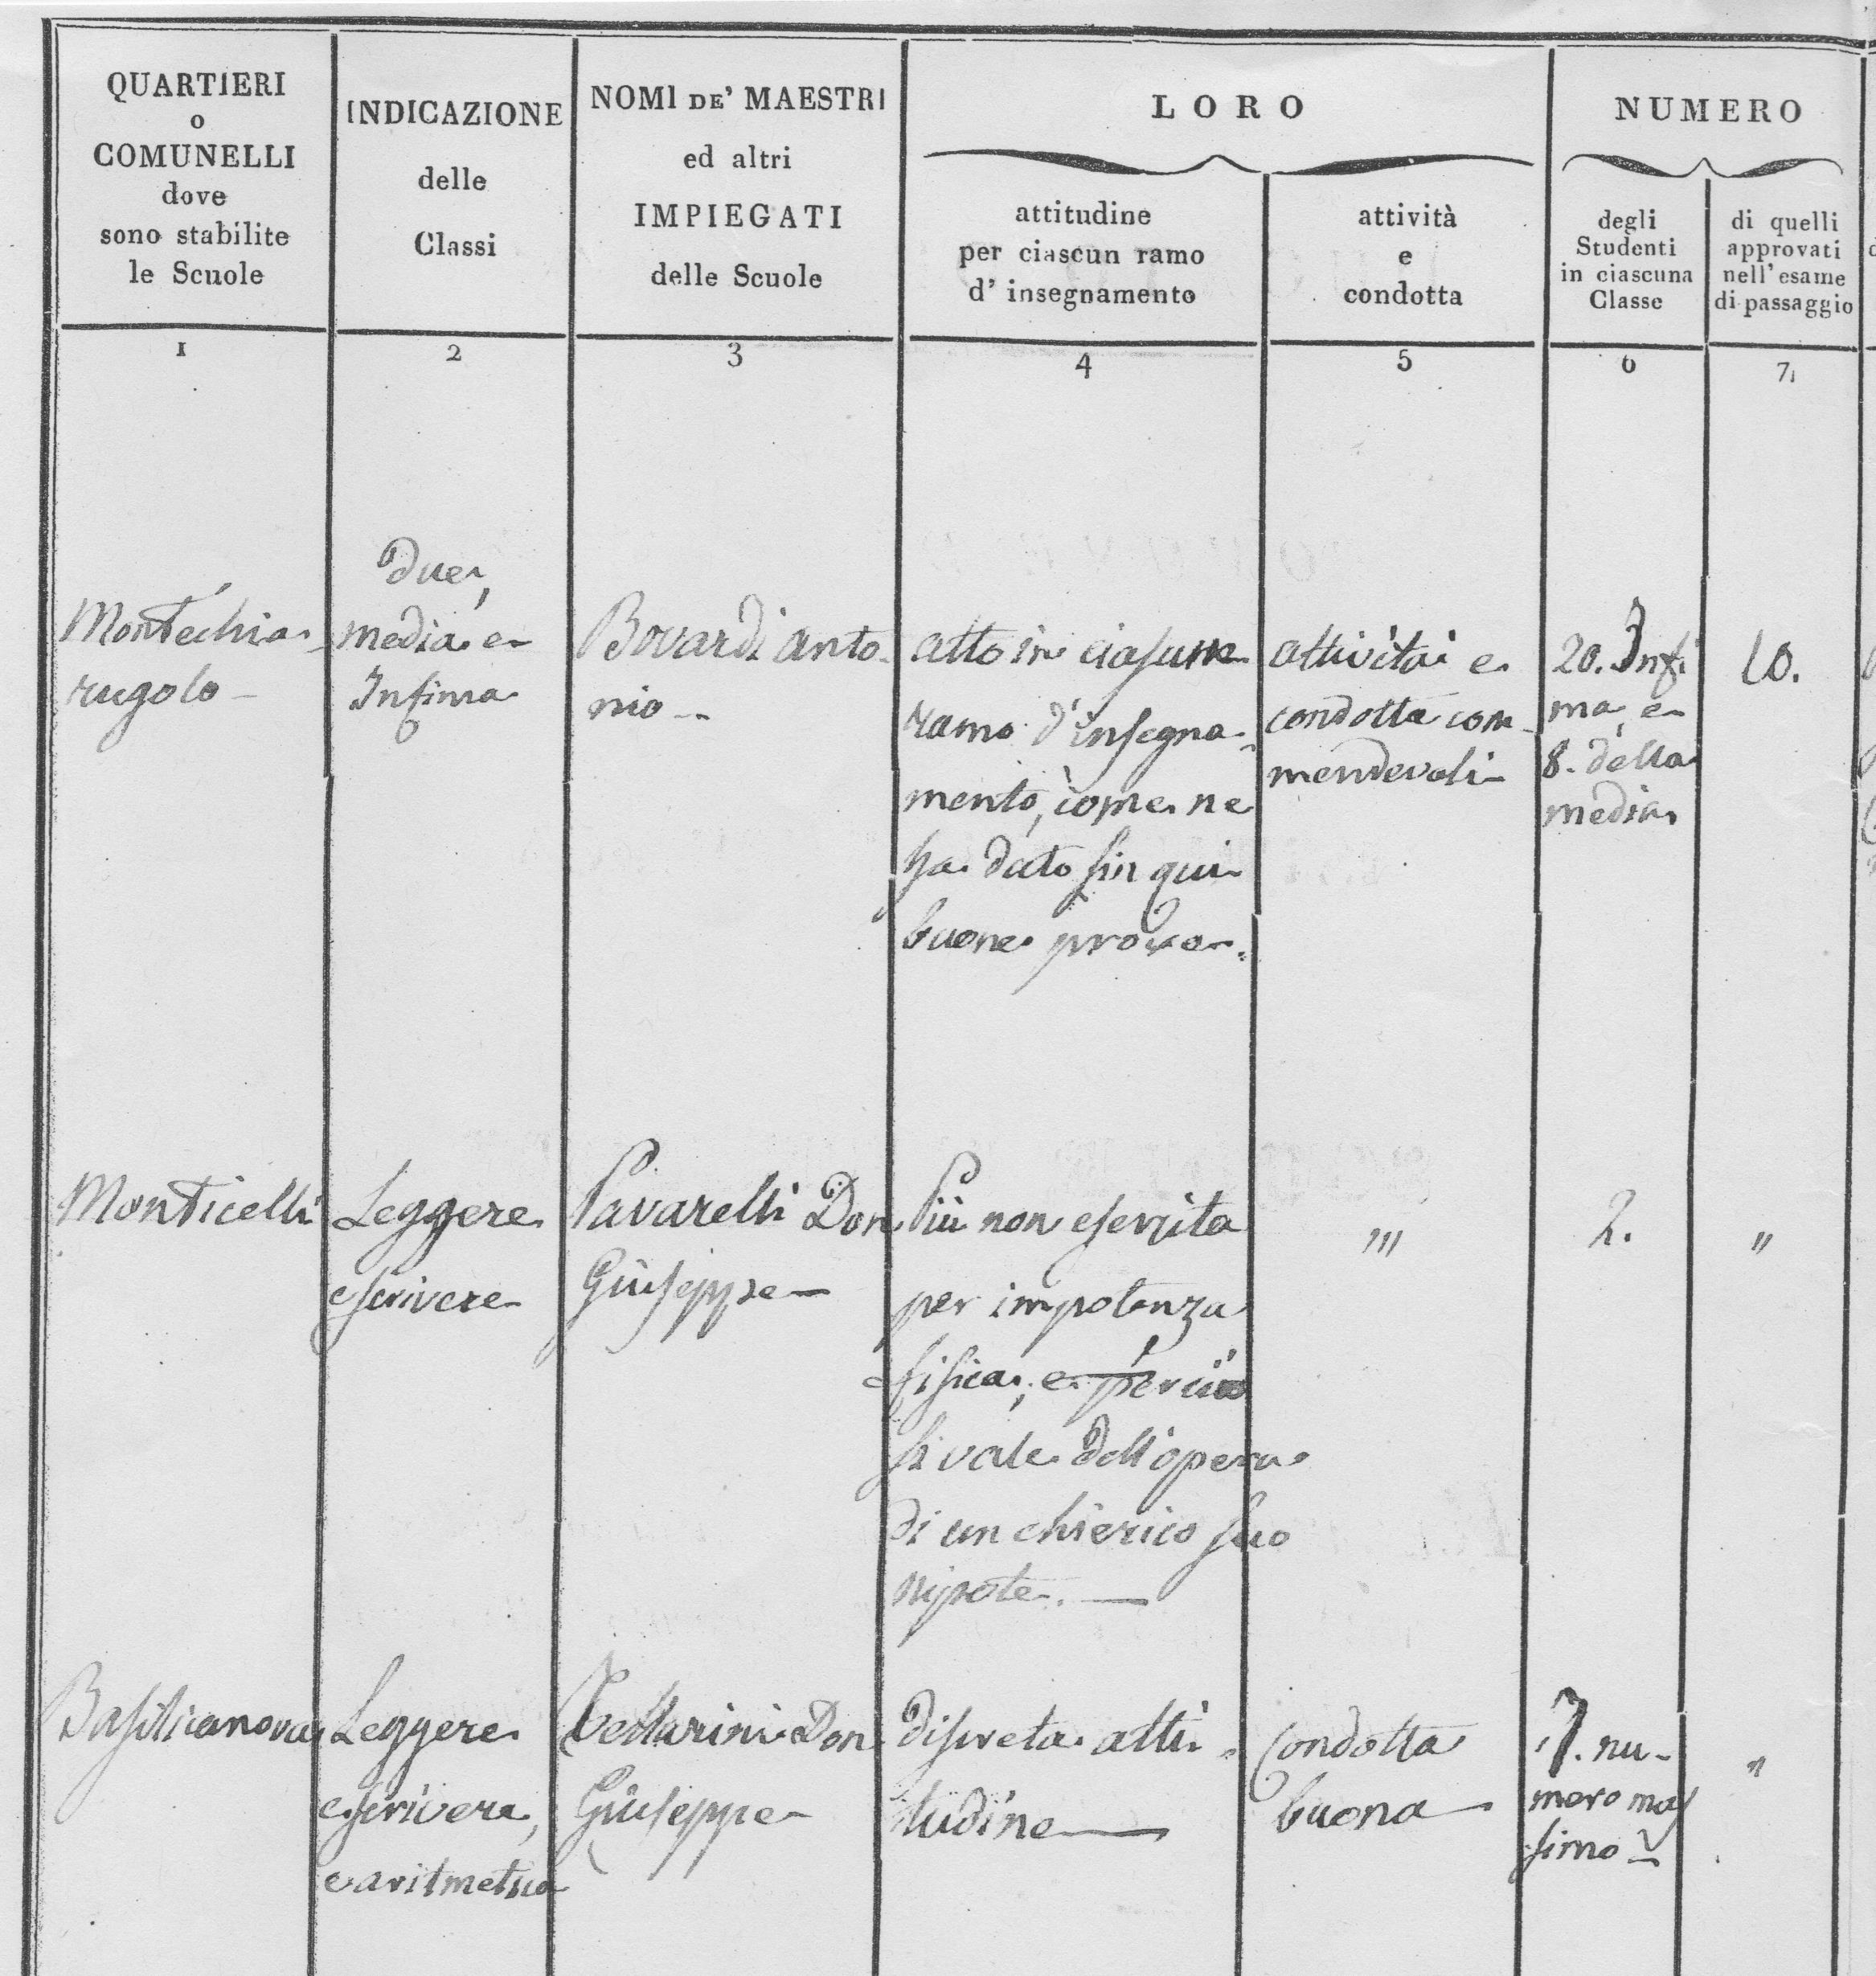 QUARTIERI
o
COMUNELLI
dove
sono stabilite
le Scuole
INDICAZIONE
delle
Classi
NOMI DE' MAESTRI
ed altri
IMPIEGATI
delle Scuole
LORO
attitudine
per ciascun ramo
d' insegnamento
attività
e
condotta
NUMERO
degli
Studenti
in ciascuna
Classe
di quelli
approvati
nell' esame
di passaggio
1
2
3
4
5
6
7
Montechia-
rugolo -
Due,
media e
Infima
Bovardi Anto-
nio -
atto in ciascun
ramo d'insegna-
mento, come ne
ha dato fin qui
buone prove.
attività e
condotta com-
mendevoli
20. Infi
ma, e
8. della
media
10.
Monticelli
Leggere
e scrivere
Pavarelli Don
Giuseppe -
Più non esercita
per impotenza
fisica, e perciò
si vale dell'opera
di un chierico suo
nipote. —
"'
2.
"
Basilicanova
Leggere
e scrivere,
e aritmetica
Don
Giuseppe
discreta atti-
tudine —
Condotta
buona —
7. nu-
mero mas
simo -
"